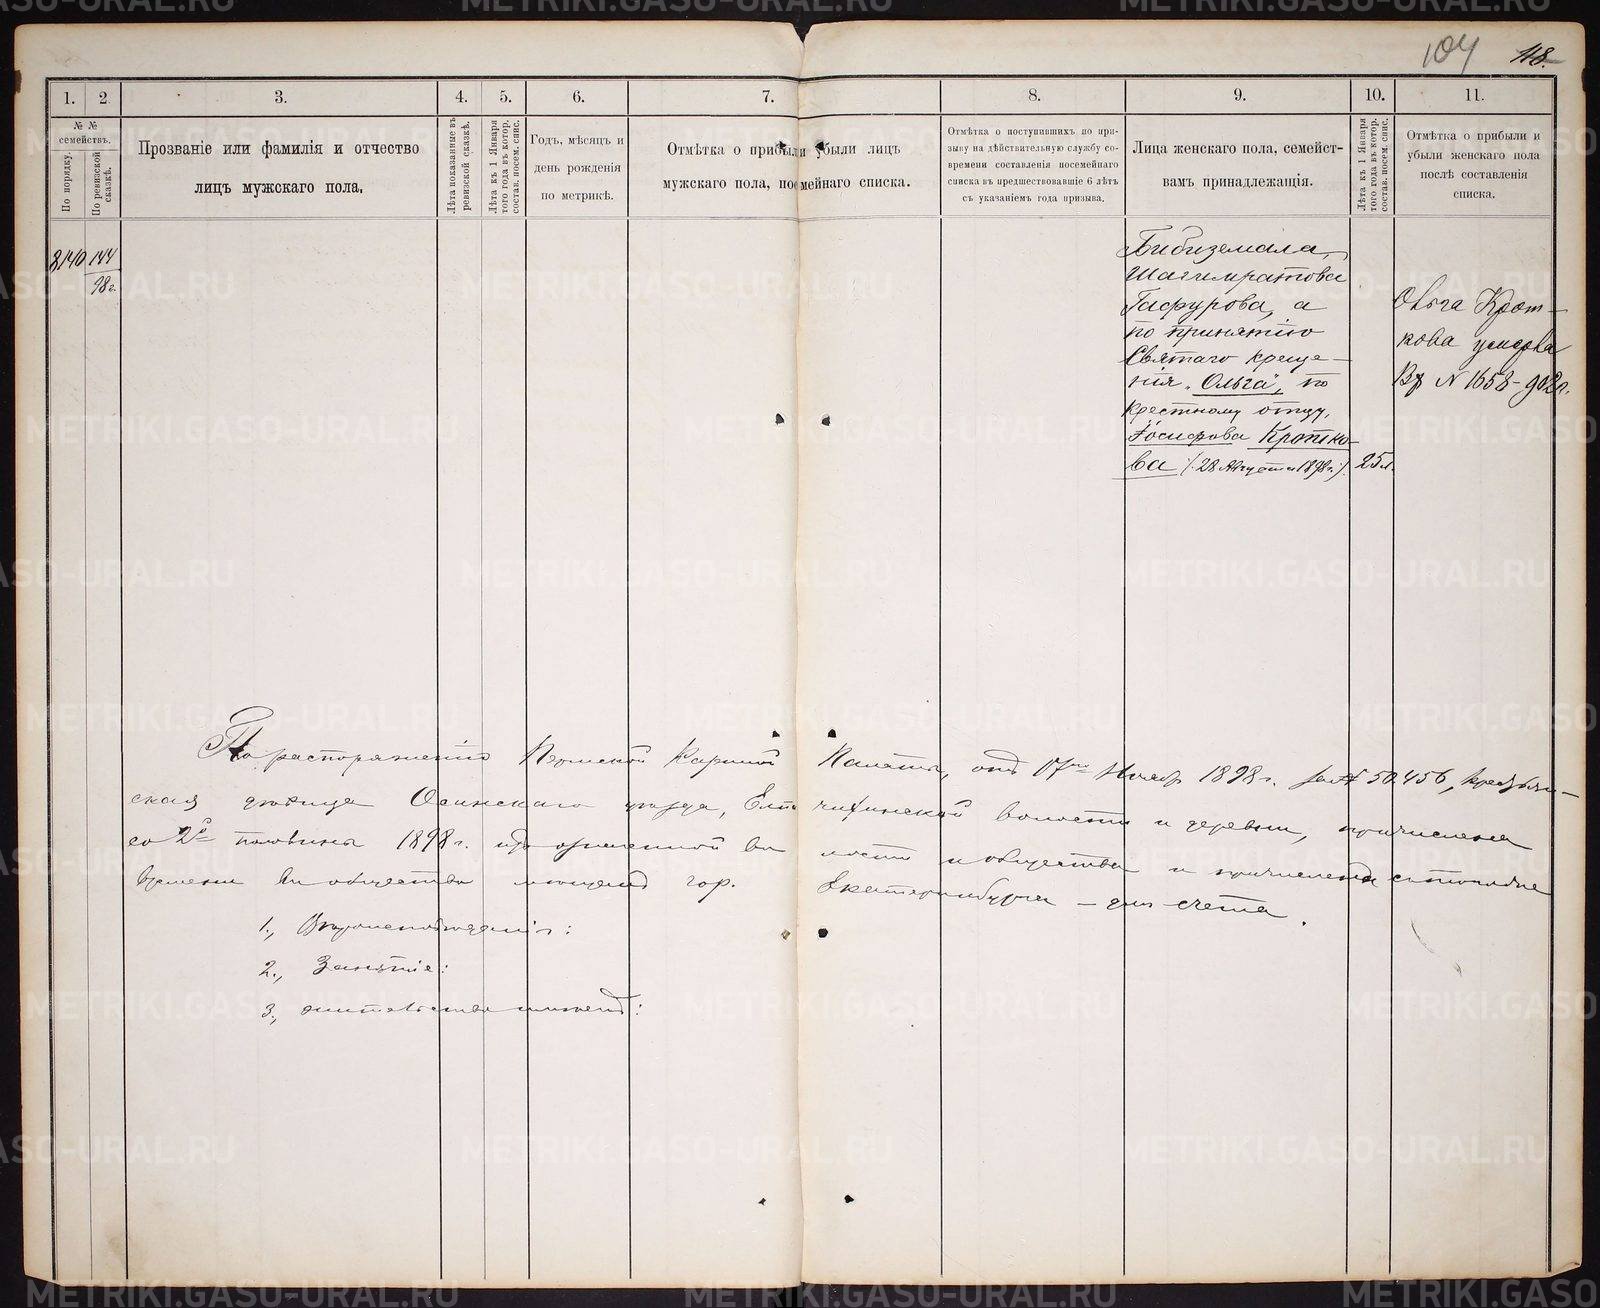 104 118.
1. 2 3. 4. 5. 6. 7. 8. 9. 10. 11.
№ №
семействъ.
По порядку.
По ревизской
сказкѣ.
Прозваніе или фамилія и отчество
лицъ мужскаго пола.
Лѣта показанныя въ
ревизской сказкѣ.
Лѣта къ 1 Января
того года въ котор.
состав. посем. спис.
Годъ, мѣсяцъ и
день рожденія
по метрикѣ.
Отмѣтка о прибыли убыли лицъ
мужскаго пола, посемейнаго списка.
Отмѣтка о поступившихъ по при-
зыву на дѣйствительную службу со-
времени составленія посемейнаго
списка въ предшествовавшіе 6 лѣтъ
съ указаніемъ года призыва.
Лица женскаго пола, семейст-
вамъ принадлежащія.
Лѣта къ 1 Января
того года въ котор.
состав. посем. спис.
Отмѣтка о прибыли и
убыли женскаго пола
послѣ составленія
списка.
8140 144
98 г.
Бибиземала
Шагимратова
Гафурова, а
по принятію
Святаго креще-
нія „Ольга", по
крестному отцу,
Іосифова Кротко-
ва /: 28 Августа 1898 г. :/ 25 л.
Ольга Крот-
кова
№ 1658 - 902 г.
По распоряженію Пермской Казенной Палаты, отъ 17го Ноябр 1898 г. за № 50.456, крестьян-
ская девица Осинскаго уезда, волости и деревни, причислена
со 2й половины 1898 г. волости и общества и причислена
времени въ общество мещанъ гор. Екатеринбурга - для счета.
1., Вероисповеданіе:
2., Занятіе:
3., жительство имеетъ:
METRIKI.GASO-URAL.RU